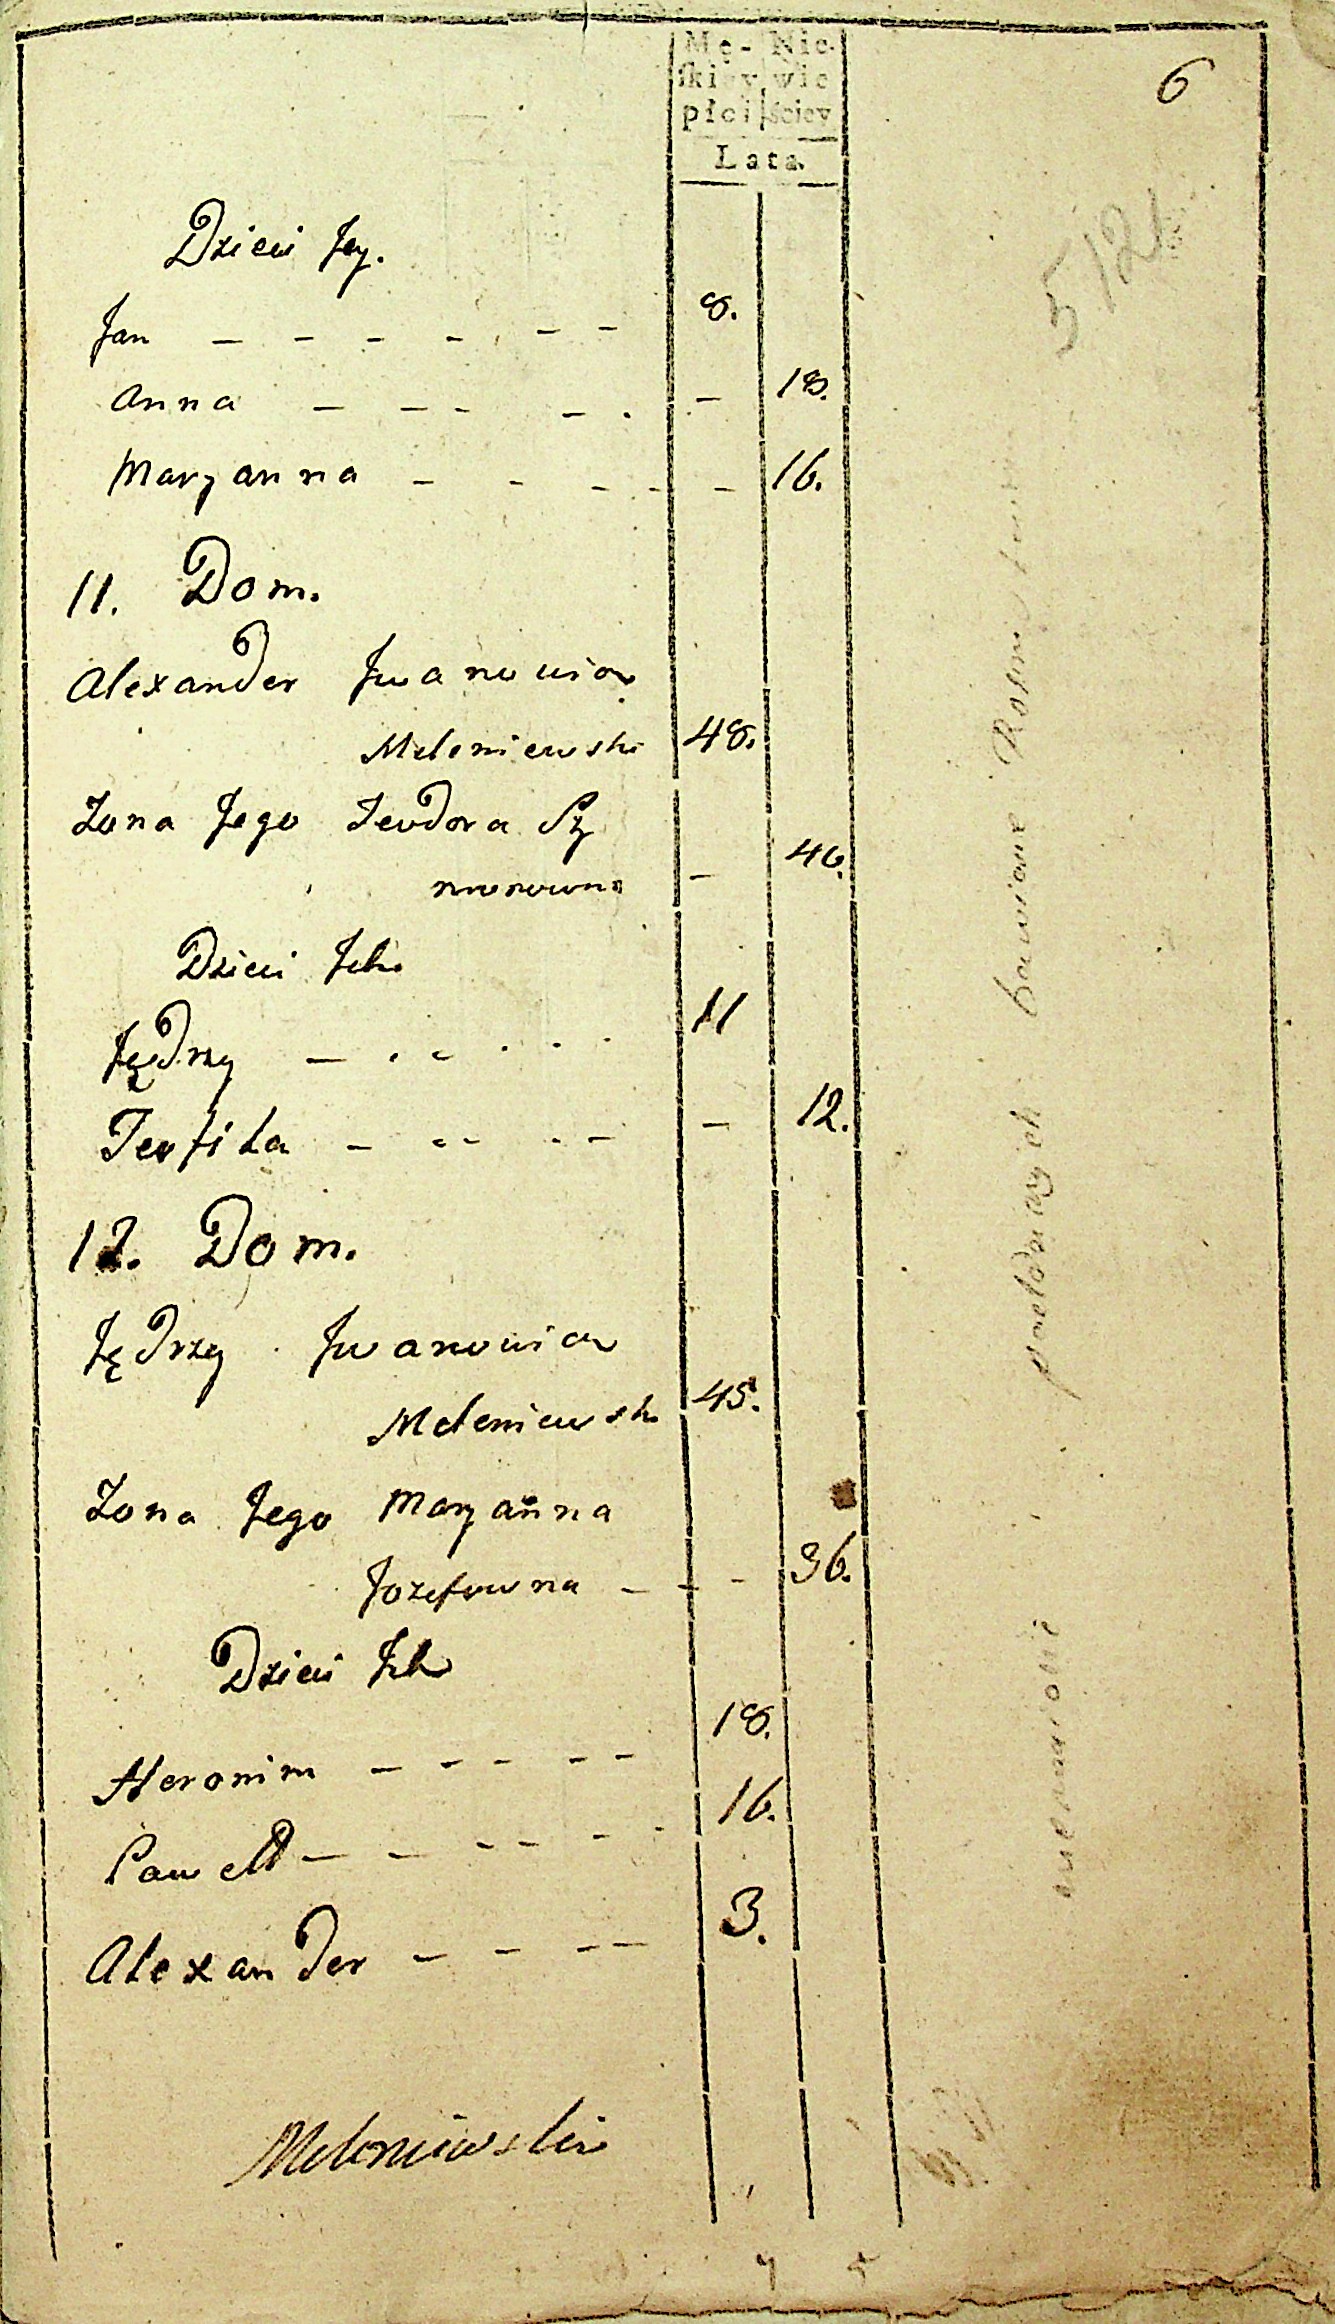 Mę- Nie-
skiey wie
płci ściey
Lata.
6
5121
Dzieci Jey.
Jan — — — — — — 8.
Anna — — — — . — 18.
Maryanna — — — — — 16.
11. Dom.
Alexander Jwanowicz
Meleniewski 48.
Zona Jego Teodora Szy
monowna — 46.
Dzieci Jch
Jędrzy — . — . . . 11
Teofila — — — — — — 12.
12. Dom.
Jędrzy Jwanowicz
Meleniewski 45.
Zona Jego Maryanna
Jozefowna — — — 36.
Dzieci Jch
Heronim — — — — — 18.
Pawełł — — — — — — 16.
Alexander — — — — 3.
Meleniewski